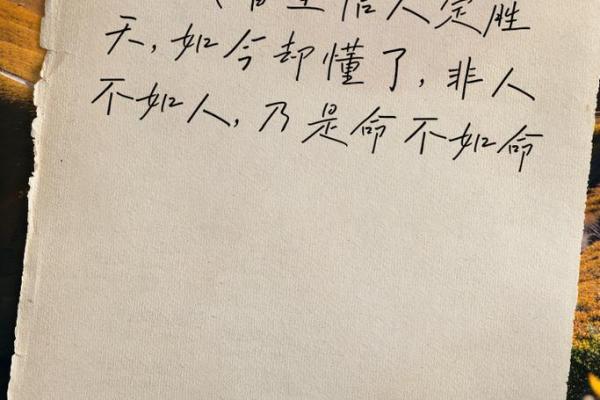 信人定胜
天，如今却懂了，非人
不如人，乃是命不如命